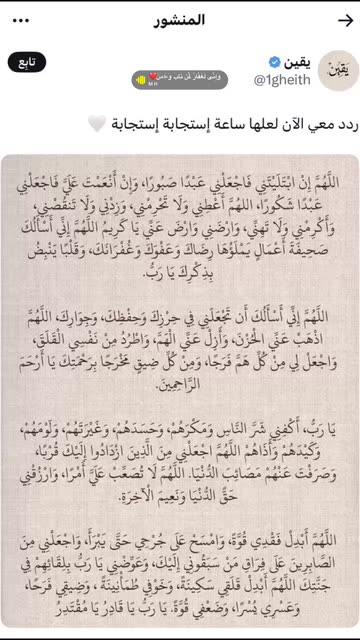 المنشور
يقين
@1gheith
تابع
ردد معي الآن لعلها ساعة إستجابة إستجابة 🤍
اللَّهُمَّ إِنْ ابْتَلَيْتَنِي فَاجْعَلْنِي عَبْدًا صَبُورًا، وَإِنْ أَنْعَمْتَ عَلَيَّ فَاجْعَلْنِي
عَبْدًا شَكُورًا، اللهُمَّ أَعْطِنِي وَلَا تَحْرِمْنِي، وَزِدْنِي وَلَا تَنقُصْنِي،
وَأَكْرِمْنِي وَلَا تَهِنِّي، وَارْضَنِي وَارْضَ عَنِّي يَا كَرِيمُ اللَّهُمَّ إِنِّي أَسْأَلُكَ
صَحِيفَةَ أَعْمَالٍ يَمْلَؤُهَا رِضَاكَ وَعَفْوَكَ وَغُفْرَانَكَ، وَقَلْبًا يَنْبِضُ
بِذِكْرِكَ يَا رَبُّ.
اللَّهُمَّ إِنِّي أَسْأَلُكَ أَن تَجْعَلَنِي فِي حِرْزِكَ وَحِفْظِكَ، وَجِوَارِكَ، اللَّهُمَّ
اذْهَبْ عَنِّي الْحُزْنَ، وَأَزِلْ عَنِّي الْهَمَّ، وَاطْرُدْ مِنْ نَفْسِي الْقَلَقَ،
وَاجْعَلْ لِي مِنْ كُلِّ هَمٍّ فَرَجًا، وَمِنْ كُلِّ ضِيقٍ مَخْرَجًا بِرَحْمَتِكَ يَا أَرْحَمَ
الرَّاحِمِينَ.
يَا رَبُّ، أَكْفِنِي شَرَّ النَّاسِ وَمَكْرَهُمْ، وَحَسَدَهُمْ، وَغَيْرَتَهُمْ، وَلَوْمَهُمْ،
وَكَيْدَهُمْ وَأَذَاهُمْ اللَّهُمَّ اجْعَلْنِي مِنَ الَّذِينَ ازْدَادُوا إِلَيْكَ قُرْبًا،
وَصَرَفْتَ عَنْهُمْ مَصَائِبَ الدُّنْيَا. اللَّهُمَّ لَا تُصَعِّبْ عَلَيَّ أَمْرًا، وَارْزُقْنِي
حَقَّ الدُّنْيَا وَنَعِيمَ الْآخِرَةِ.
اللَّهُمَّ أَبْدِلْ فَقْدِي قُوَّةً، وَامْسَحْ عَلَى جُرْحِي حَتَّى يَبْرَأَ، وَاجْعَلْنِي مِنَ
الصَّابِرِينَ عَلَى فِرَاقِ مَنْ سَبَقُونِي إِلَيْكَ، وَعَوِّضْنِي يَا رَبُّ بِلِقَائِهِمْ فِي
جَنَّتِكَ اللَّهُمَّ أَبْدِلْ قَلَقِي سَكِينَةً، وَخَوْفِي طُمَأْنِينَةً ، وَضِيقِي فَرَحًا،
وَعَسْرِي يُسْرًا، وَضَعْفِي قُوَّةً. يَا رَبُّ يَا قَادِرُ يَا مُقْتَدِرُ